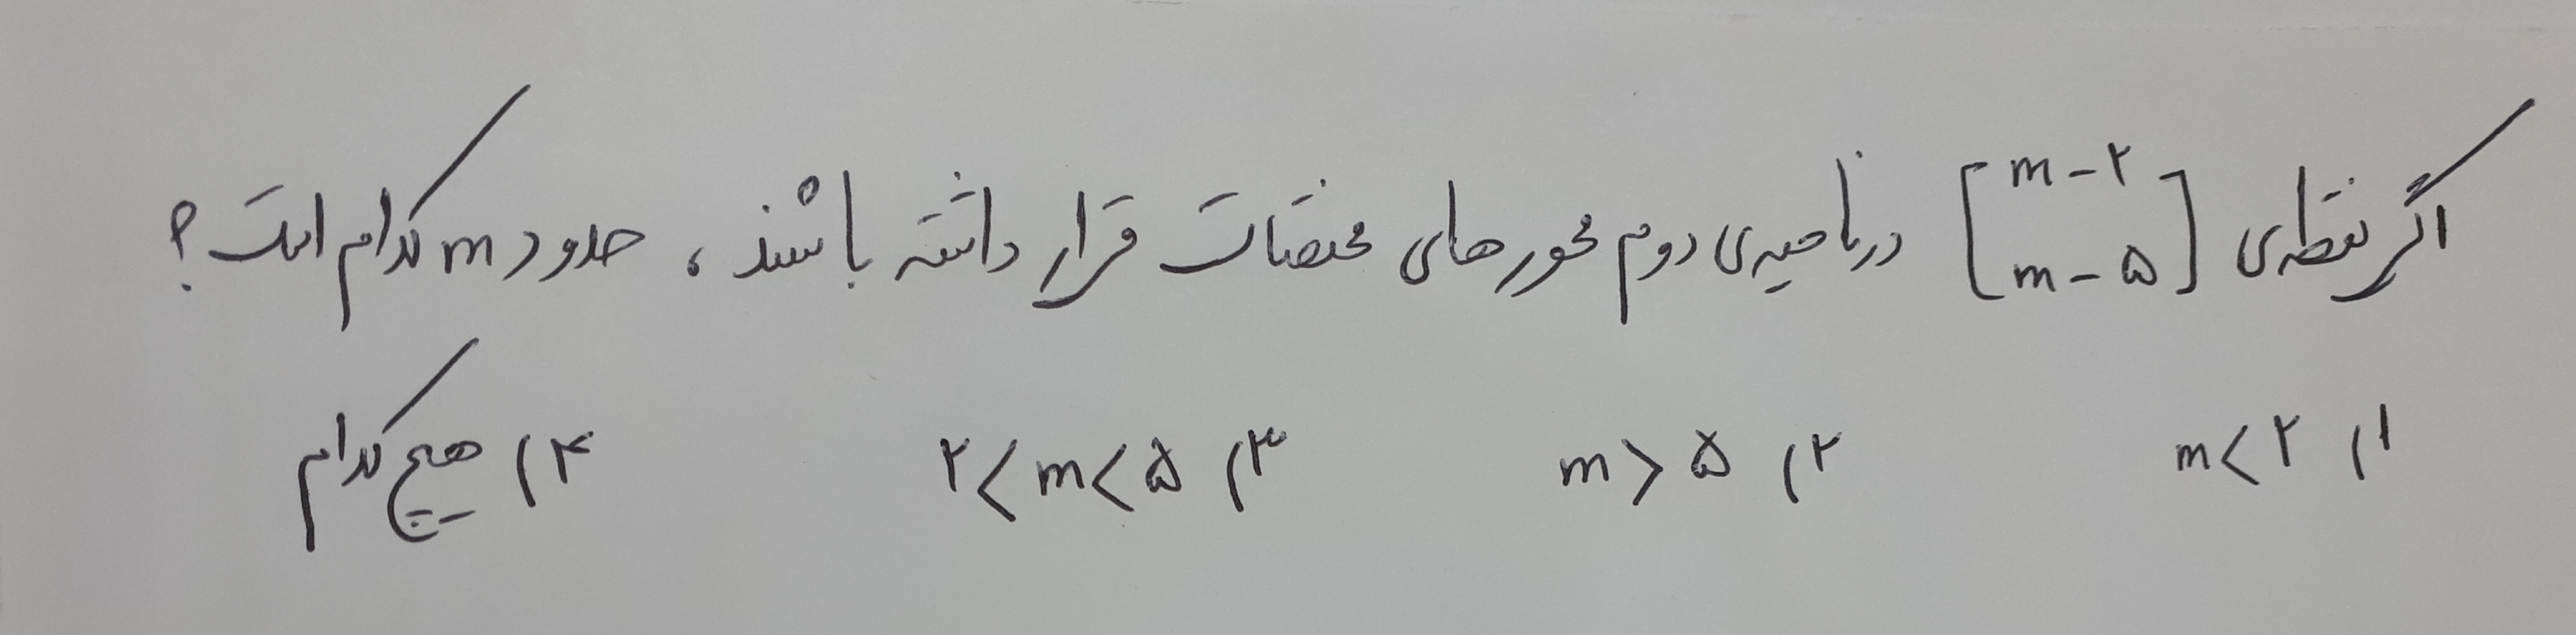 اگر نقطه‌ی [m-۲ m-۵] در ناحیه‌ی دوم محورهای مختصات قرار داشته باشند، حدود m کدام است؟
۱) m<۲ ۲) m>۵ ۳) ۲<m<۵ ۴) هیچ کدام